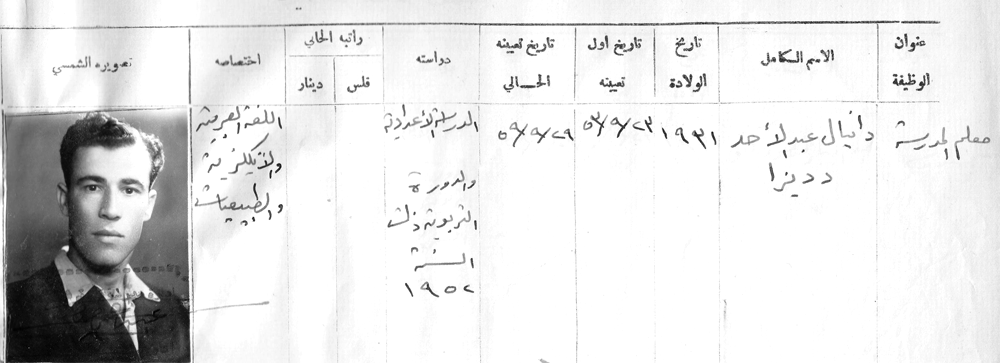 عنوان الوظيفة
الاسم الكامل
تاريخ الولادة
تاريخ اول تعيينه
تاريخ تعيينه الحالي
دراسته
راتبه الحالي
فلس
دينار
اختصاصه
تصويره الشمسي
معلم المدرسة
دانيال عبدالأحد
ددیزا
١٩٣١
٥٣/٩/٢٣
٥٩/٩/٢٩
المدرسة الأعدادية
والدورة
التربوية ذات
السنة
١٩٥٢
اللغة العربية
والانكليزية
والطبيعيات